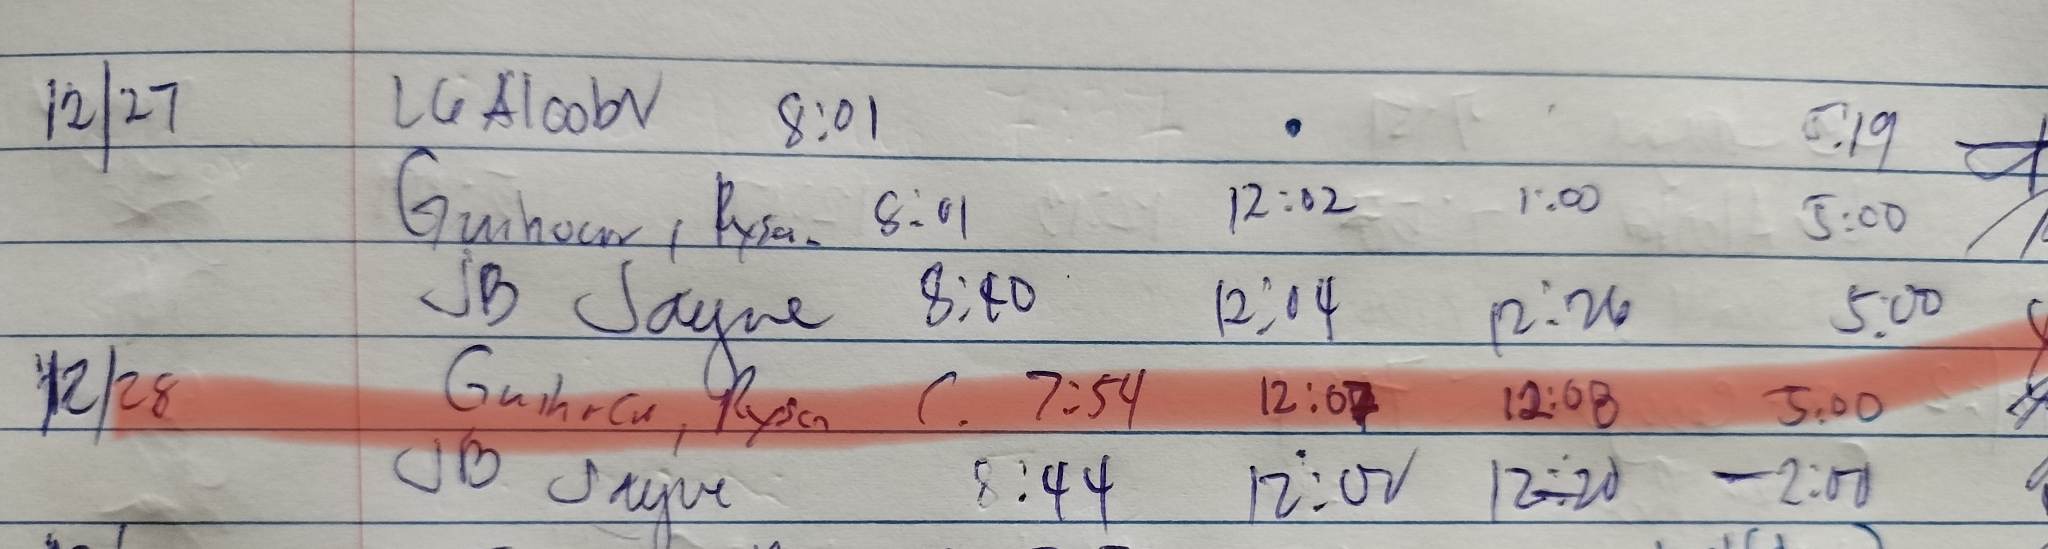 12/27 LG Alcobr 8:01 5:19
Guihocor, Rysa. 8:01 12:02 1:00 5:00
JB Jayne 8:40 12:04 12:26 5:00
12/28 C. 7:54 12:07 12:08 5:00
JB Jayne 8:44 12:01 12:20 - 2:00